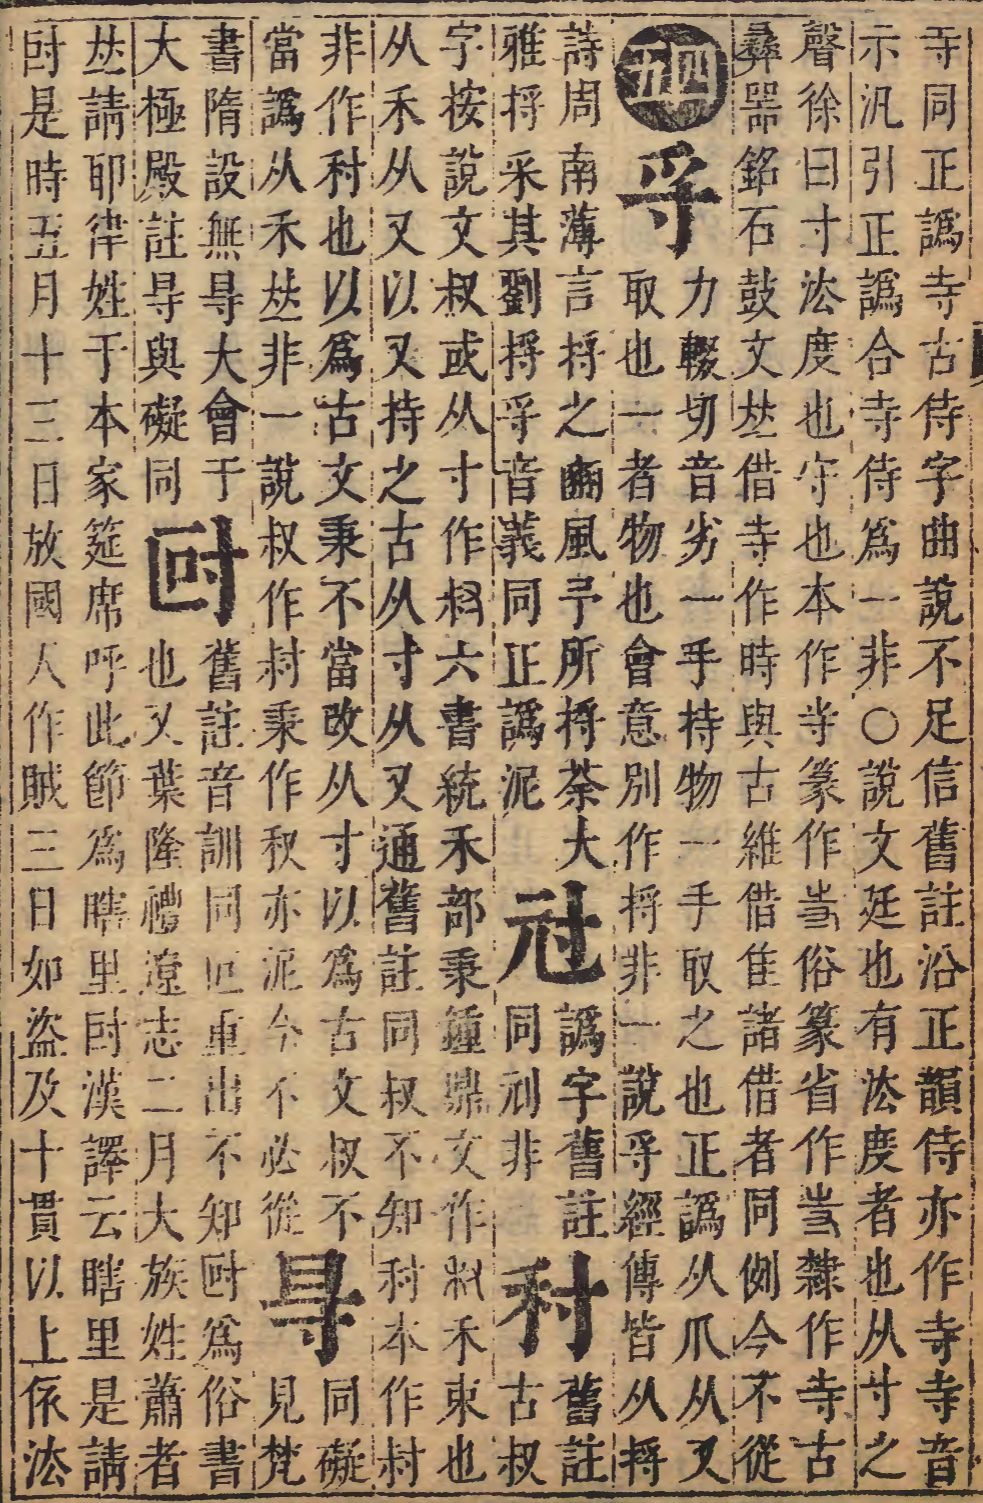 寺同正譌寺古侍字曲說不足信舊註沿正韻侍亦作寺寺音
示汎引正譌合寺侍爲一非○說文廷也有法度者也从寸之
聲徐曰寸法度也守也本作寺篆作峕俗篆省作旹隸作寺古
彝器銘石鼓文𠀤借寺作時與古維借隹諸借者同例今不從
四畫
寽
力輟切音劣一手持物一手取之也正譌从爪从又
取也一者物也會意別作捋非一說寽經傳皆从捋
詩周南薄言捋之豳風予所捋荼大
雅捋采其劉捋寽音義同正譌泥
⿰元寸
譌字舊註
同刓非
⿰禾寸
舊註
古叔
字按說文叔或从寸作六書統禾部秉鍾鼎文作禾束也
从禾从又以又持之古从寸从又通舊註同叔不知⿰禾寸本作村
非作⿰禾寸也以爲古文秉不當改从寸以爲古文叔不
當譌从禾𠀤非一說叔作秉作亦泥今不必從
㝵
同礙
見梵
書隋設無㝵大會于
大極殿註㝵與礙同
尀
舊註音訓同叵重出不知尀爲俗書
也又葉隆禮遼志二月大族姓蕭者
𠀤請耶律姓于本家筵席呼此節爲瞎里尀漢譯云瞎里是請
尀是時五月十三日放國人作賊三日如盜及十貫以上依法